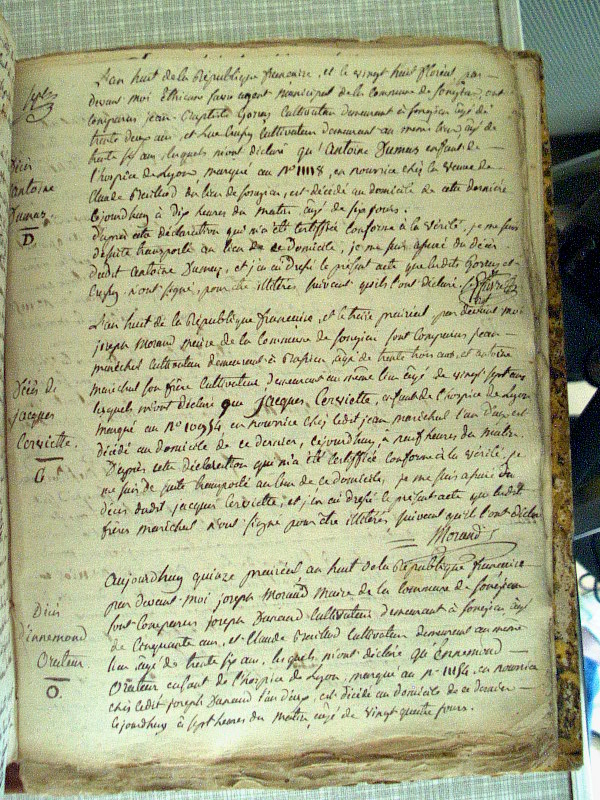 Sept
Décès
antoine
Dumas.
D
L'an huit de la République francaise, et le vingt huit floréal, par
devant moi Ethienne favre agent municipal de la Commune de Songieu, ont
comparus jean Baptiste Goreux Cultivateur demeurant à Songieu âgé de
trente deux ans, et Cultivateur demeurant au meme lieu, agé de
trente six ans lesquels m'ont déclaré qu'Antoine Dumas enfant de
l'hospice de Lyon marqué au N° 11118, en nourrice chez la veuve de
Claude du lieu de Songieu, est décédé au domicile de cette derniere
cejourdhuy à dix heures du matin âgé de six jours.
D'après cette déclaration qui m'a été certiffiée conforme à la vérité, je me suis
desuite transporté au lieu de ce domicile, je me suis assuré du décès
dudit Antoine Dumas, et j'en ai dressé le présent acte que lesdits Goreux et
n'ont signé, pour etre illiterés suivant qu'ils l'ont déclaré.
Décès de
jacques
Cerviette.
C
L'an huit de la République francaise, et le treize prairial par devant moi
joseph Morand Maire de la Commune de Songieu sont Comparus jean
maréchal cultivateur demeurant à âgé de trente trois ans, et antoine
maréchal son frère Cultivateur demeurant au même lieu âgé de vingt sept ans
lesquels m'ont déclaré que Jacques Cerviette, enfant de l'hospice de Lyon
marqué au N° 10954 en nourrice chez ledit jean maréchal l'un d'eux est
décédé au domicile de ce dernier, cejourdhuy, a neuf heures du matin.
D'après cette déclaration qui m'a été certiffiée conforme à la vérité, je
me suis de suite transporté au lieu de ce domicile, je me suis assuré du
décès dudit jacques Cerviette, et j'en ai dressé le présent acte que lesdits
frères maréchal n'ont signé pour être illiterés, suivant qu'ils l'ont déclaré
Morand
Décès
d'innemond
Orateur
O.
aujourdhuy quinze prairial an huit de la République francaise
par devant moi joseph Morand Maire de la commune de Songieu
sont Comparus joseph Cultivateur demeurant à Songieu âgé
de Cinquante ans, et Claude Cultivateur demeurant au meme
lieu agé de trente six ans, lesquels m'ont déclaré qu'Ennemond
Orateur enfant de l'hospice de Lyon, marqué au n° 11154, en nourrice
chez ledit joseph l'un d'eux, est décédé au domicile de ce dernier
cejourdhuy à sept heures du matin, âgé de vingt quatre jours.